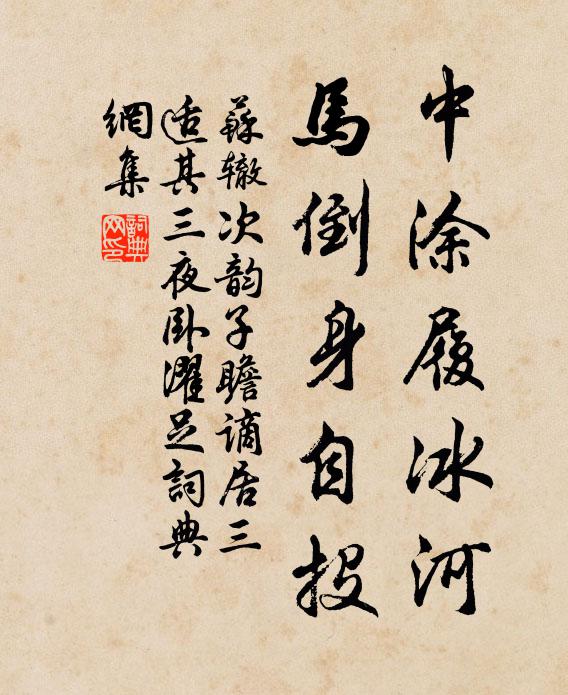 中涂履冰河
馬倒身自投
蘇辙次韵子瞻谪居三
适其三夜卧濯足詞典
網集
詞典
网印